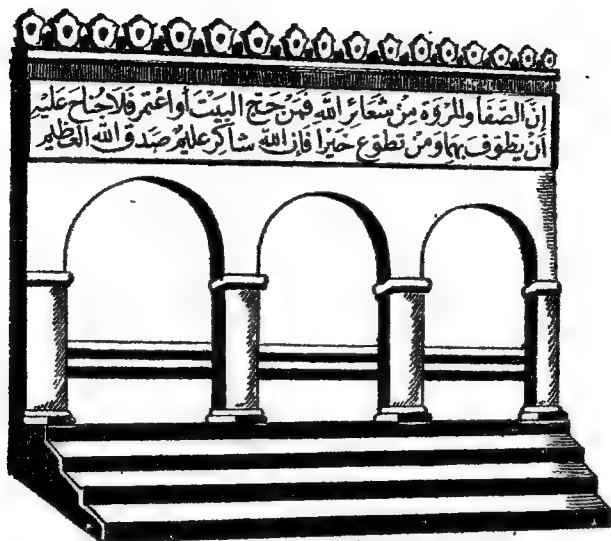 إنَّ الصَّفَا والمَرْوَةَ مِنْ شَعَائِرِ اللَّهِ فَمَنْ حَجَّ البَيْتَ أَوِ اعْتَمَرَ فَلَا جُنَاحَ عَلَيْهِ
أَنْ يَطَّوَّفَ بِهِمَا وَمَنْ تَطَوَّعَ خَيْرًا فَإِنَّ اللَّهَ شَاكِرٌ عَلِيمٌ صَدَقَ اللَّهُ العَظِيم